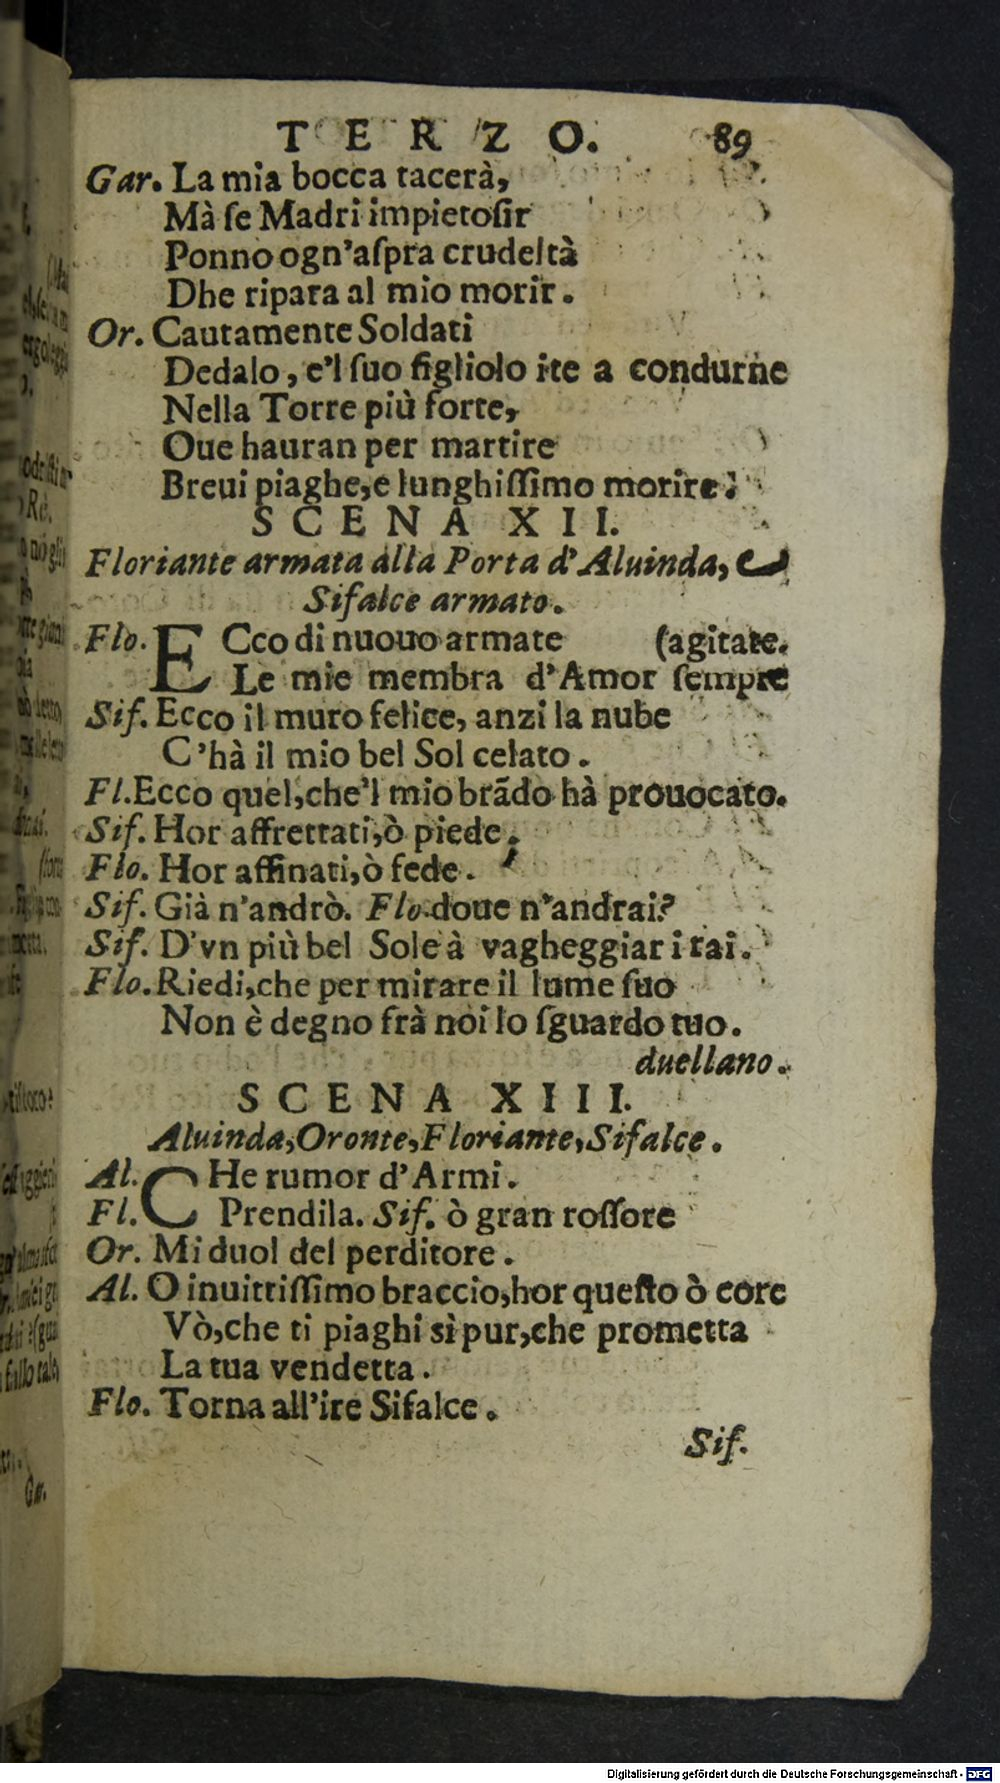 TERZO. 89
Gar. La mia bocca tacerà,
Mà ſe Madri impietoſir
Ponno ogn'aſpra crudeltà
Dhe ripara al mio morir.
Or. Cautamente Soldati
Dedalo, e'l ſuo figliolo ite a condurne
Nella Torre più forte,
Oue hauran per martire
Breui piaghe, e lunghiſſimo morire.
SCENA XII.
Floriante armata alla Porta d'Aluinda, &
Sifalce armato.
Flo. ECco di nuouo armate (agitate.
Le mie membra d'Amor ſempre
Sif. Ecco il muro felice, anzi la nube
C'hà il mio bel Sol celato.
Fl. Ecco quel, che'l mio brãdo hà prouocato.
Sif. Hor affrettati, ò piede.
Flo. Hor affinati, ò fede.
Sif. Già n'andrò. Flo. doue n'andrai?
Sif. D'vn più bel Sole à vagheggiar i rai.
Flo. Riedi, che per mirare il lume ſuo
Non è degno frà noi lo ſguardo tuo.
duellano.
SCENA XIII.
Aluinda, Oronte, Floriante, Sifalce.
Al. CHe rumor d'Armi.
Fl. Prendila. Sif. ò gran roſſore
Or. Mi duol del perditore.
Al. O inuittiſſimo braccio, hor queſto ò core
Vò, che ti piaghi sì pur, che prometta
La tua vendetta.
Flo. Torna all'ire Sifalce.
Sif.
Digitalisierung gefördert durch die Deutsche Forschungsgemeinschaft - DFG